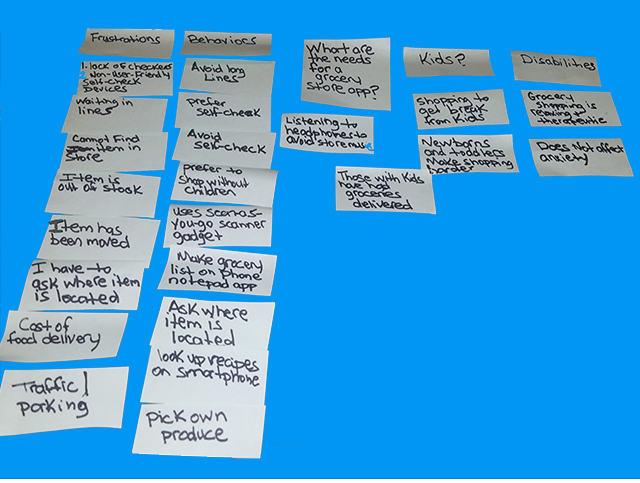 Frustrations
1. lack of checkers
2. Non-User-Friendly
Self-check
Devices
Waiting in
lines
Cannot Find
item in
store
Item is
out of stock
Item has
been moved
I have to
ask where item
is located
Cost of
food delivery
Traffic/
parking
Behaviors
Avoid long
Lines
prefer
self-check
Avoid
self-check
prefer to
shop without
children
uses scan-as-
you-go scanner
gadget
Make grocery
list on phone
notepad app
Ask where
item is
located
look up recipes
on smartphone
pick own
produce
What are
the needs
for a
grocery
store app?
Listening to
headphones to
avoid store music
Those with Kids
have had
groceries
delivered
Kids?
shopping to
get break
from Kids
Newborns
and toddlers
Make shopping
harder
Disabilities
Grocery
shopping is
relaxing +
therapeutic
Does not affect
anxiety